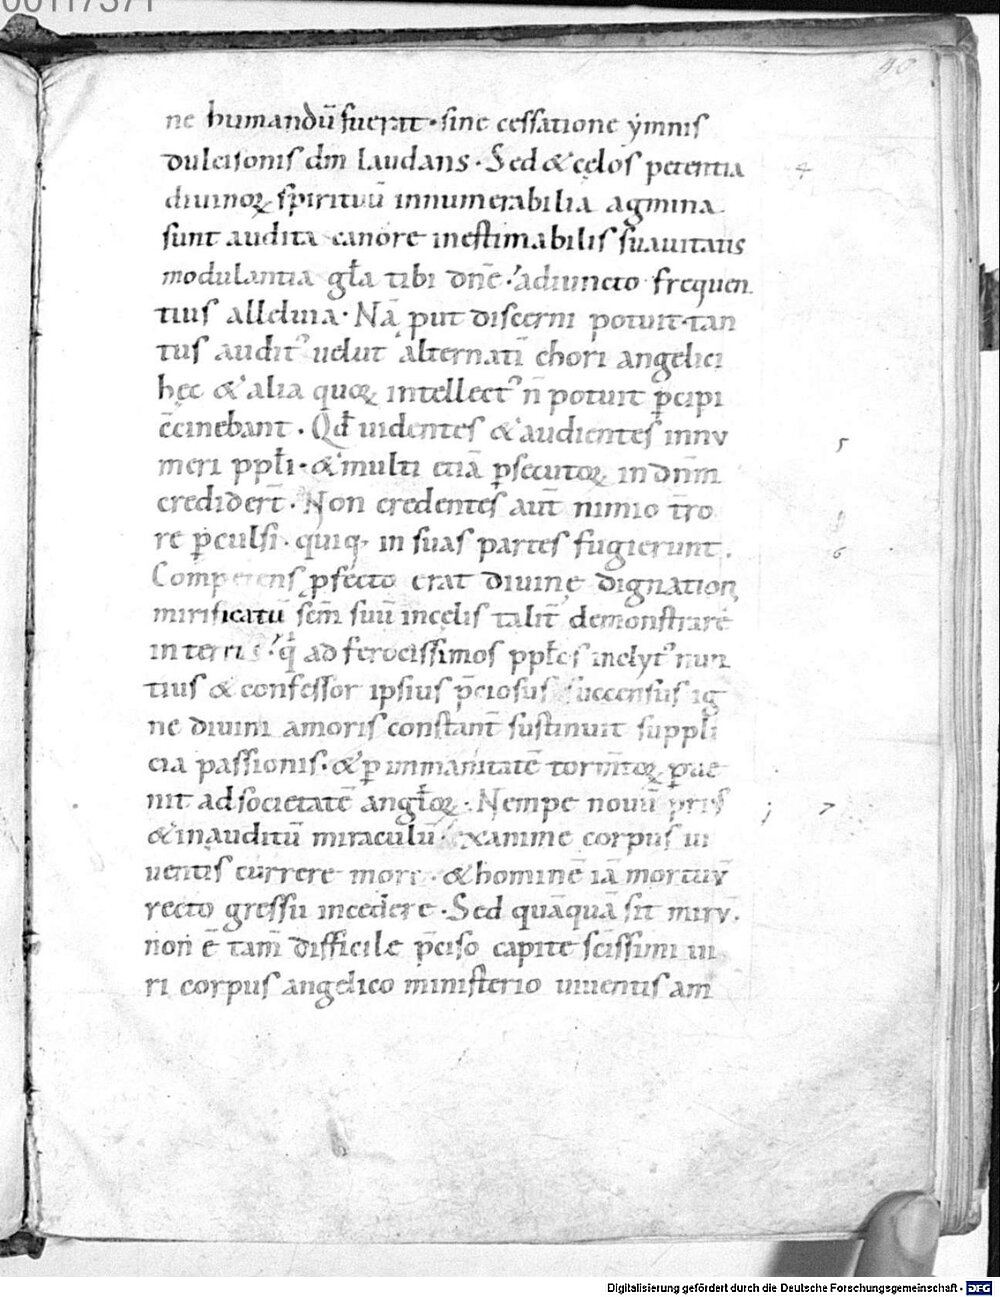 00117371
40
ne humandū fuerat · sine cessatione ẏmnis
dulcisonis dm̄ laudans · Sed & cęlos petentia
4
diuinoꝝ spirituū innumerabilia agmina
sunt audita canore inestimabilis suauitatis
modulantia gl̄a tibi dn̄e · adiuncto frequen
tius alleluia · Nā put discerni potuit tan
tus audit᾽ uelut alternatī chori angelici
hęc & alia quoꝝ intellect᾽ n̄ potuit ꝑcipi
c̄cinebant · Qd̄ uidentes & audientes innu
5
meri ppl̄i · & multi etiā ꝑsecutoꝝ in dnm̄
crediderт̄ · Non credentes aut̄ nimio t̄ro
re ꝑculsi · quiq; in suas partes fugierunt .
6
Competens ꝓfecto erat diuinę dignationi
mirificatū sem̄ suū in cęlis talit̄ demonstrare
in terris q̄ ad ferocissimos ppl̄os inclyt᾽ nun
tius & confessor ipsius p̄ciosus succensus ig
ne diuini amoris constant̄ sustinuit suppli
cia passionis · & ꝑ inmanitatē torm̄toꝝ ꝑue
nit ad societatē angl̄oꝝ · Nempe nouū
7
& inauditū miraculū exanime corpus ui
uentis currere more · & hominē iā mortuū
recto gressu incedere · Sed quāquā sit mirū .
non ē tam̄ difficile p̄ciso capite sc̄issimi ui
ri corpus angelico ministerio uiuentis am
Digitalisierung gefördert durch die Deutsche Forschungsgemeinschaft - DFG